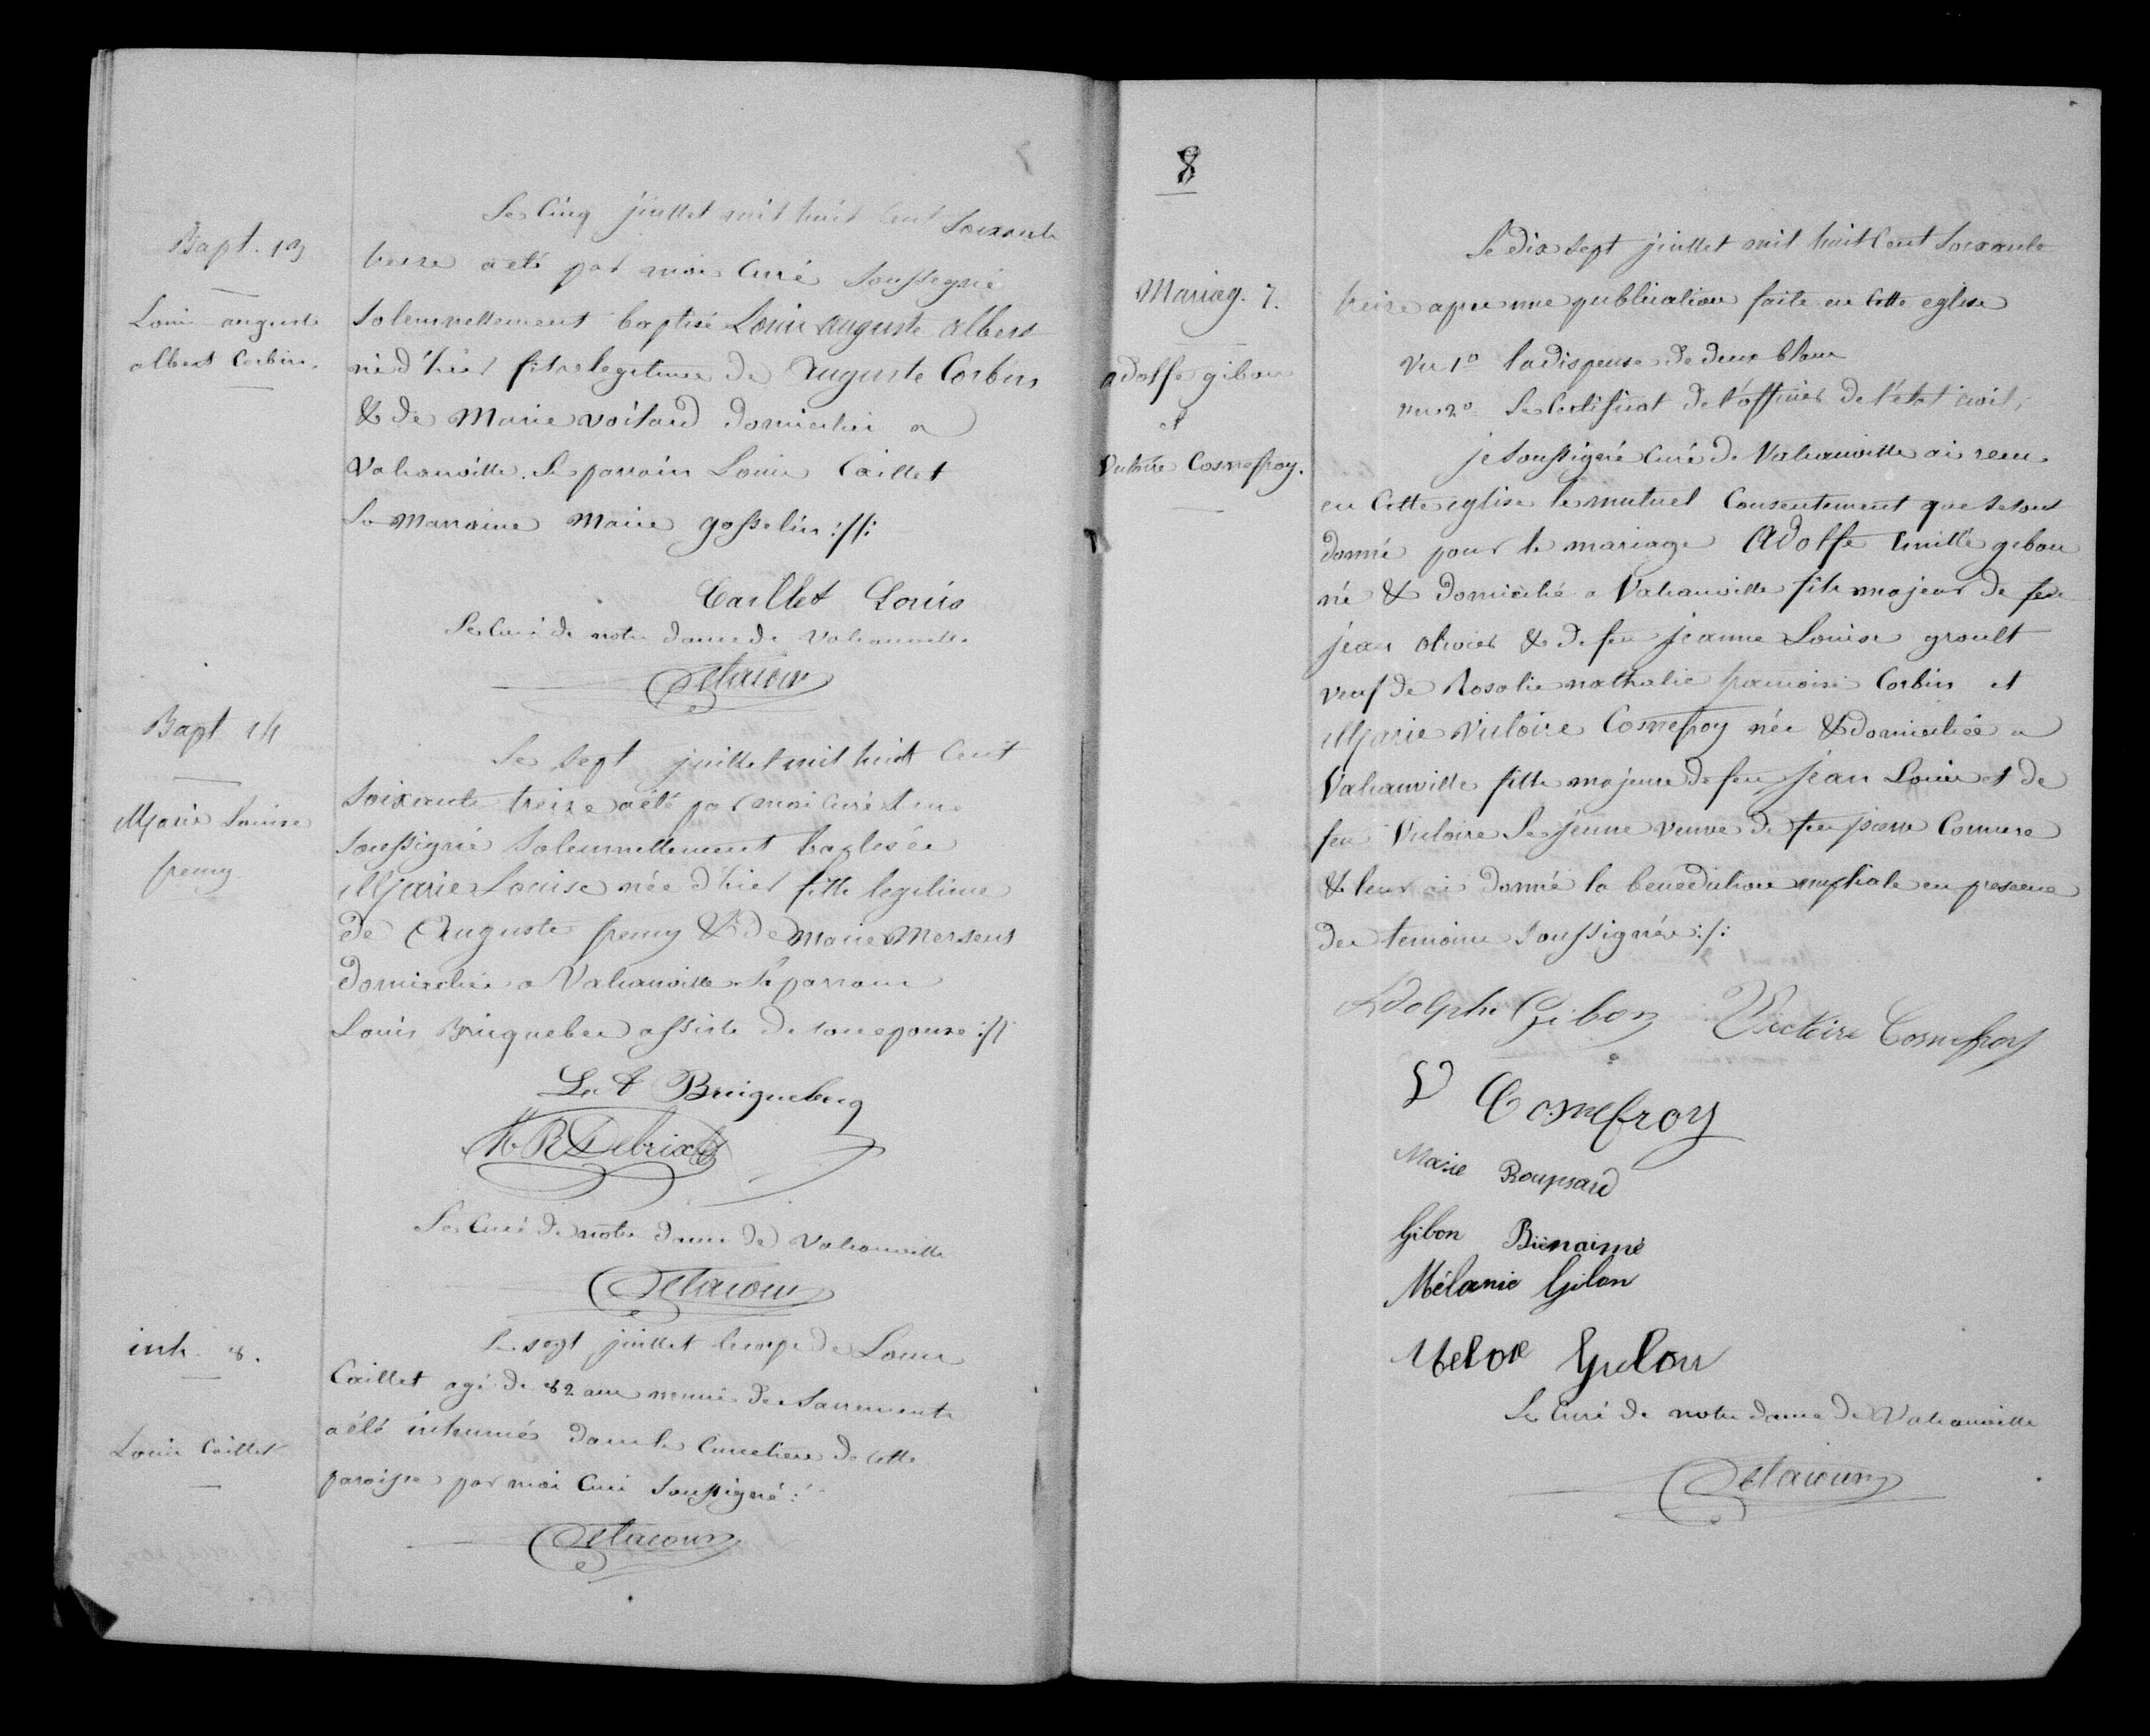 Bapt. 13
Louis auguste
albert Corbin.
Le Cinq juillet mil huit Cent Soixante
treize a été par moi Curé Soussigné
Solennellement baptisé Louis auguste albert
né d'hier fils legitime de Auguste Corbin
& de Marie voisard domicilié a
Vahanville. Le parrain Louis Caillet
La Marraine Marie gosselin :/:
Caillet Louis
Le Curé de notre dame de Vahanville
Delacour
Bapt 14
Marie Louise
fremy
Le Sept juillet mil huit Cent
Soixante treize a été par moi curé
Soussigné Solennellement baptisée
Marie Louise née d'hier fille legitime
de Auguste fremy & de Marie Mersent
domicilié a Vahanville Le parrain
Louis Bricquebec assisté de son epouse :/:
L A Bricquebecq
Debrix
Le Curé de notre dame de Vahanville
Delacour
inh. 8.
Louis Caillet
Le sept juillet le corps de Louis
Caillet agé de 82 ans munis des Sacrements
a été inhumés dans le Cimetiere de cette
paroisse par moi Curé Soussigné :
Delacour
8
Mariag. 7.
adolfe gibon
et
Victoire Cosnefroy.
Le dix Sept juillet mil huit Cent Soixante
treize apres une publication faite en Cette eglise
Vu 1o la dispense de deux bans
vu 2o Le Certificat de l'officier de l'état civil;
je Soussigné Curé de Vahanville ai recu
en Cette eglise le mutuel Consentement que se sont
donné pour le mariage Adolfe gibon
né & domicilié a Vahanville fils majeur de feu
jean olivier & de feu jeanne Louise groult
veuf de Rosalie nathalie francoise Corbin et
Marie Victoire Cosnefroy née & domiciliée a
Vahanville fille majeure de feu jean Louis et de
feu Victoire Lejeune veuve de feu pierre
& leur ai donné la benediction nuptiale en presence
des temoins Soussignés :/:
Adolphe Gibon Victoire Cosnefroy
V Cosnefroy
Marie Roupsard
Gibon Bienaimé
Mélanie Gibon
Gibon
Le Curé de notre dame de Vahanville
Delacour